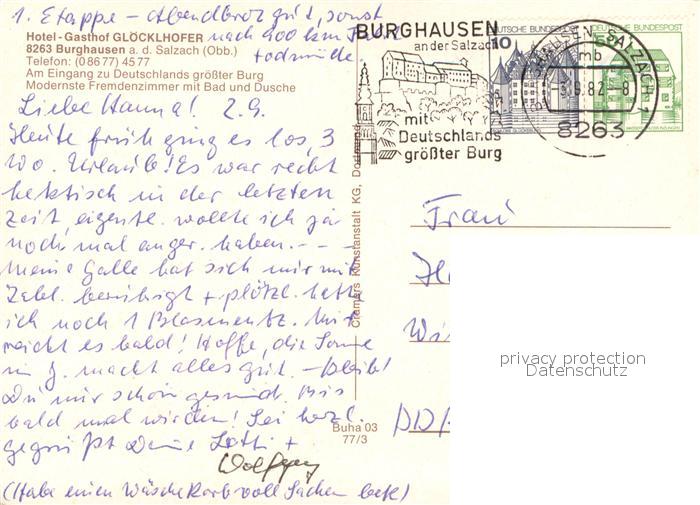 1. Etappe – Abendbrot gut, sonst
nach 900 km Fahrt
todmüde.
Hotel - Gasthof GLÖCKLHOFER
8263 Burghausen a. d. Salzach (Obb.)
Telefon: (0 86 77) 45 77
Am Eingang zu Deutschlands größter Burg
Modernste Fremdenzimmer mit Bad und Dusche
Liebe Hanna! 2.9.
Heute früh ging es los, 3
Wo. Urlaub! Es war recht
hektisch in der letzten
Zeit, eigentl. wollte ich ja
nochmal anger. haben. - - -
Meine Galle hat sich mir mit
Tabl. beruhigt + plötzl. hatte
ich noch 1 Blasenentz. Mir
reicht es bald! Hoffe, die Sonne
in J. macht alles gut. – Bleibt
Du mir schön gesund. Bis
bald mal wieder! Sei herzl.
gegrüßt Deine Lotti +
Wolfgang
(Habe einen Wäschekorb voll Sachen)
BURGHAUSEN
an der Salzach
mit
Deutschlands
größter Burg
DEUTSCHE BUNDESPOST
10
DEUTSCHE BUNDESPOST
BURGHAUSEN, SALZACH 1
mb
-3.9.82-8
8263
Cramers Kunstanstalt KG, Dortmund
Buha 03
77/3
Frau
privacy protection
Datenschutz